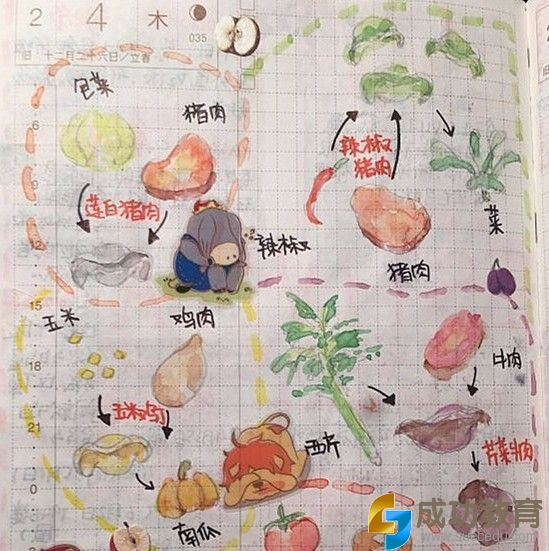 2 4 木
035
旧 十二月二十六日/立春
包菜
猪肉
6
9
莲白猪肉
12
辣椒
辣椒
猪肉
菜
猪肉
15
玉米
鸡肉
牛肉
18
玉米鸡肉
21
西芹
芹菜牛肉
0
南瓜
成功教育